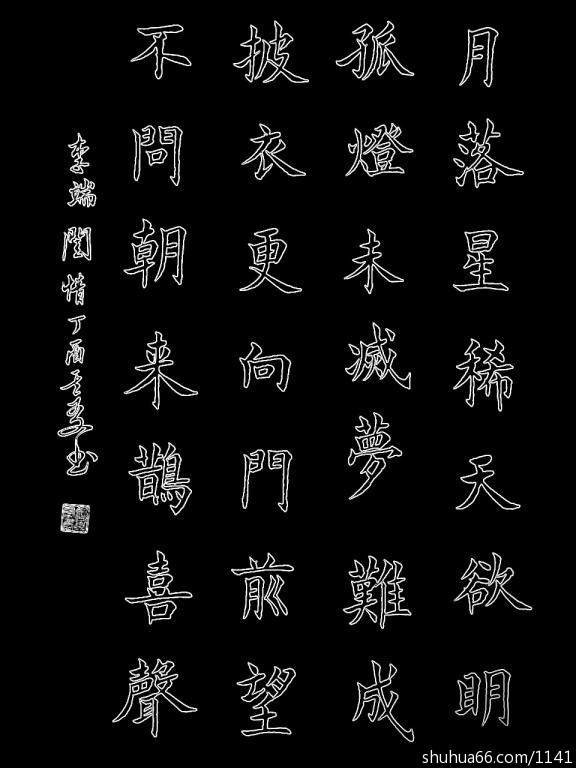 月落星稀天欲明
孤燈未滅夢難成
披衣更向門前望
不問朝来鵲喜聲
李端閨情丁酉夏书
shuhua66.com/1141